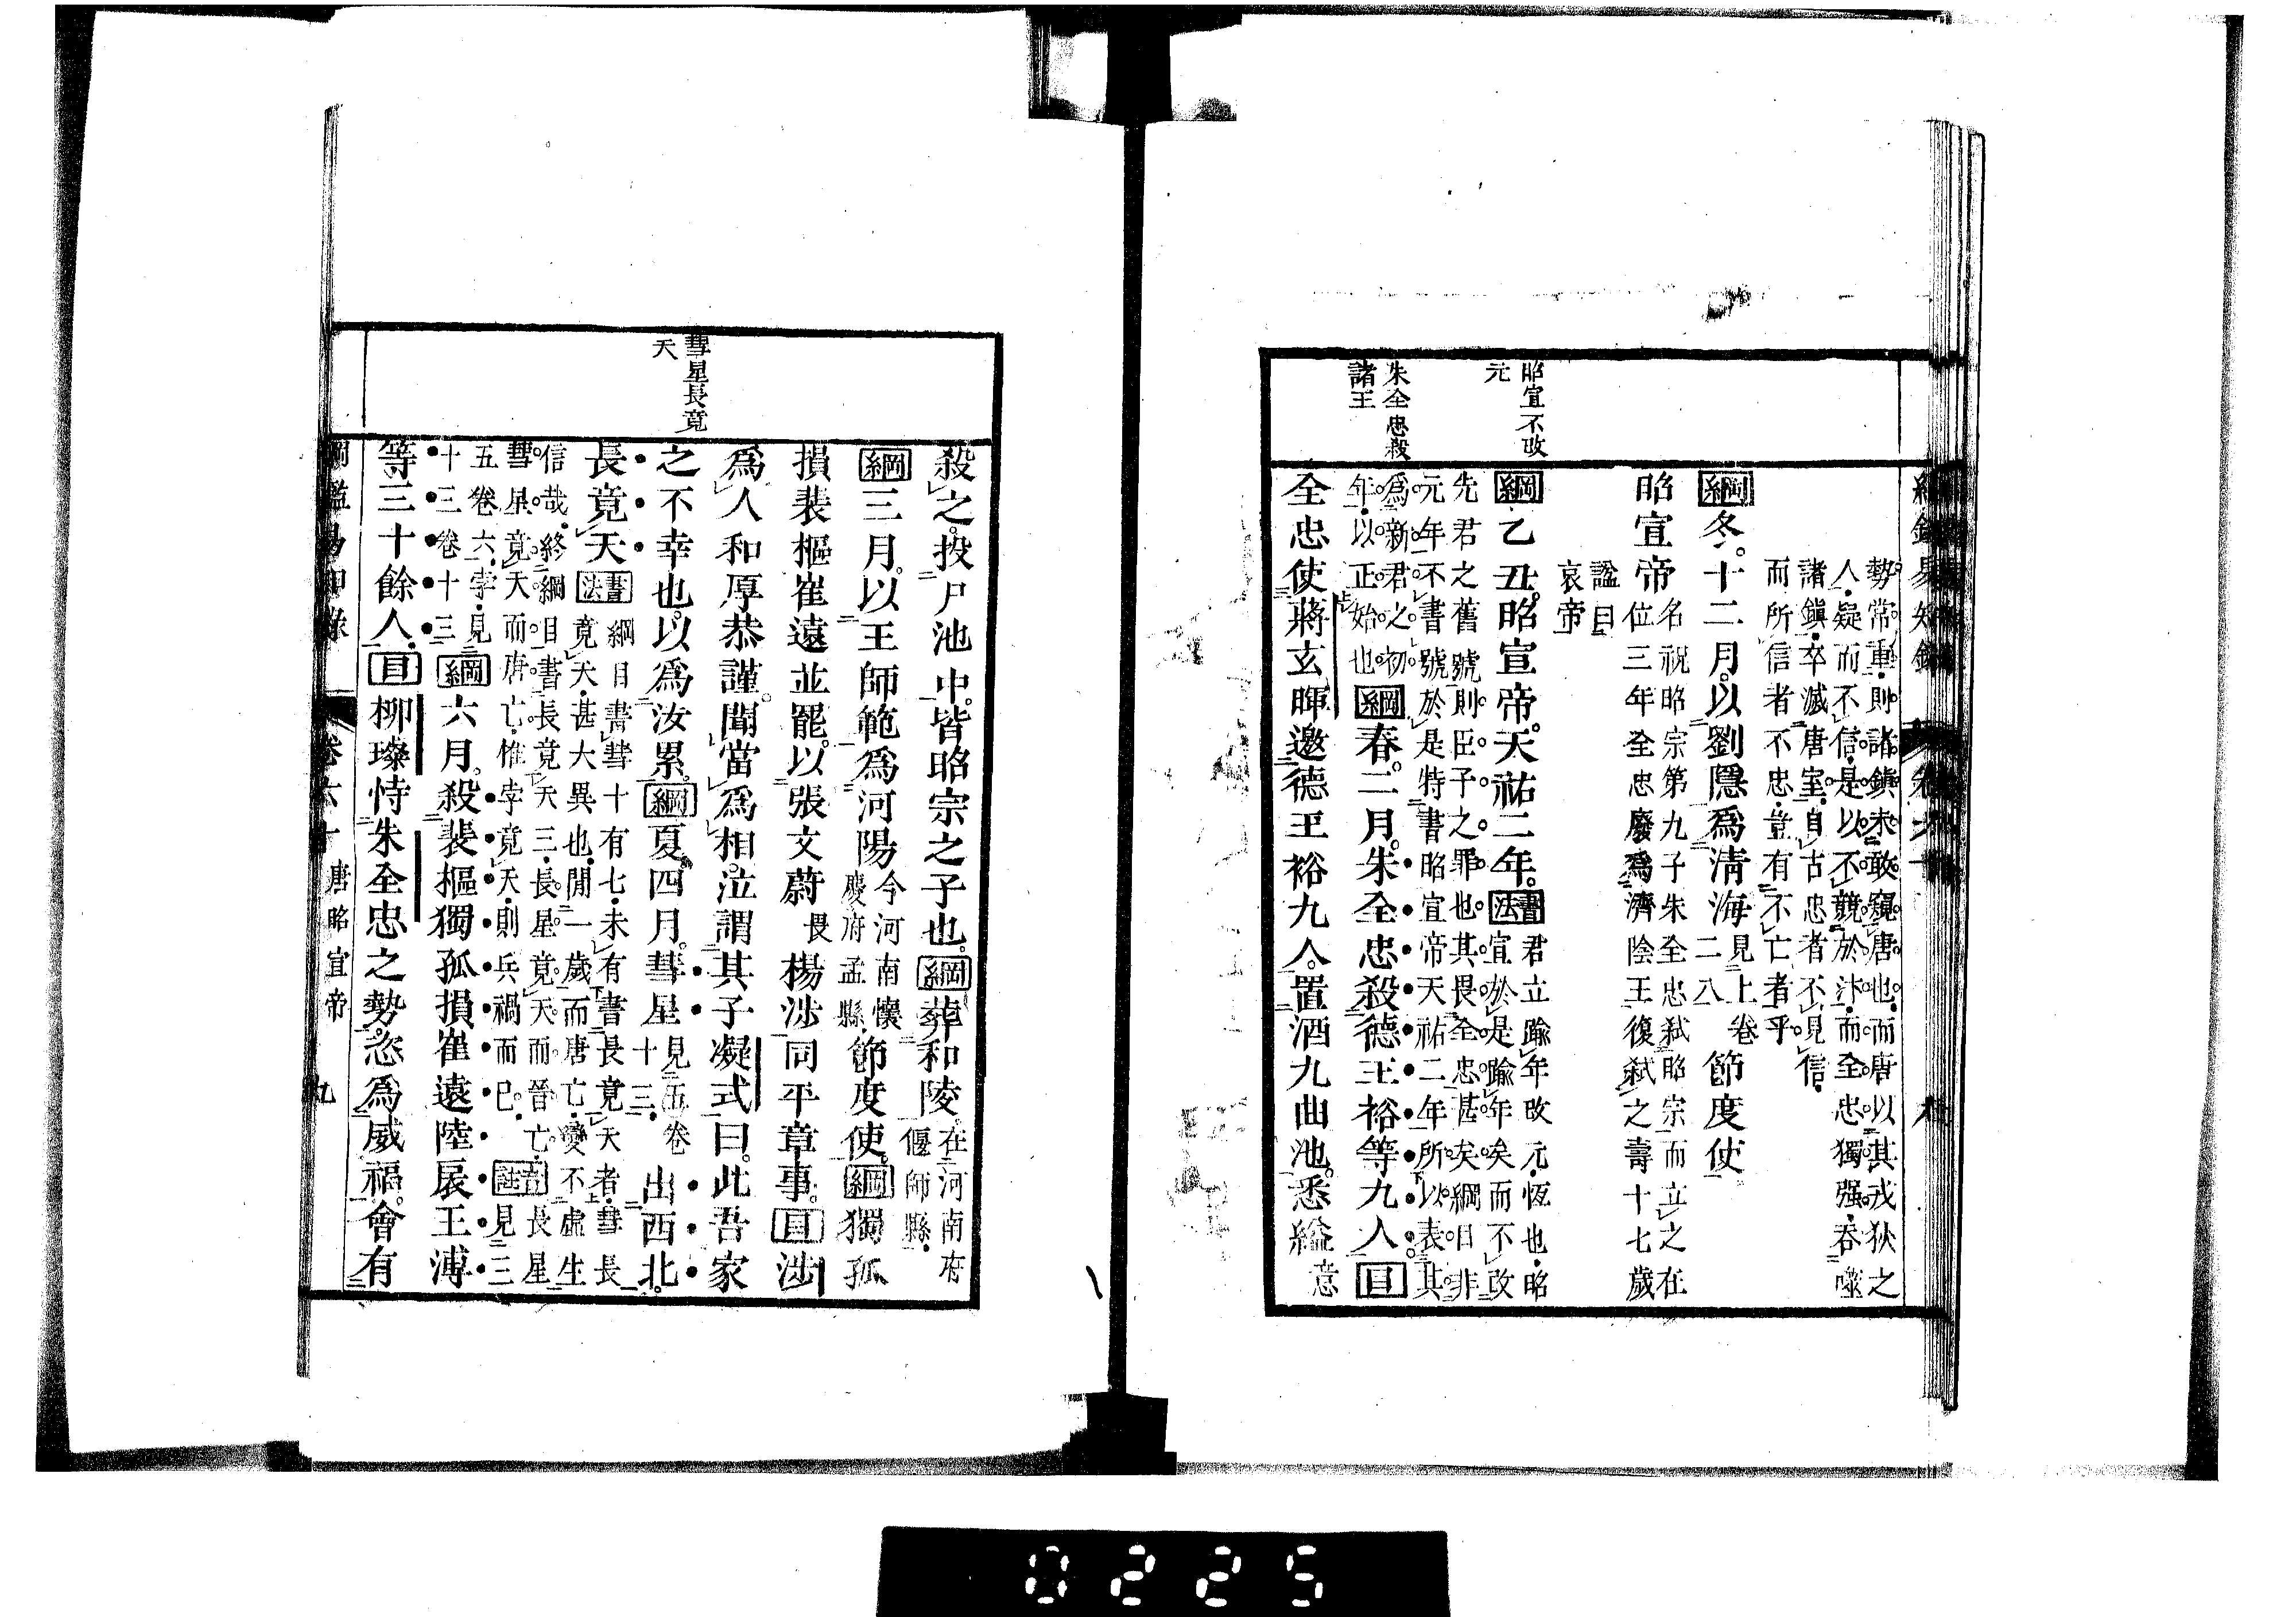 昭宣不改
元
朱全忠殺
諸王
勢常重則諸鎮未敢窺唐也而唐以其戎狄之
人疑而不信是以不競於汴而全忠獨强吞噬
諸鎮卒滅唐室自古忠者不見信
而所信者不忠豈有不亡者乎
綱冬十二月以劉隱爲清海見上卷二八節度使
昭宣帝名祝昭宗第九子朱全忠弑昭宗而立之在位三年全忠廢爲濟陰王復弑之壽十七歲
諡曰
哀帝
綱乙丑昭宣帝天祐二年書法君立踰年改元恆也昭宣於是踰年矣而不改
先君之舊號則臣子之罪也其畏全忠甚矣綱目非
元年不書號於是特書昭宣帝天祐二年所以表其
爲新君之初
年以正始也綱春二月朱全忠殺德王裕等九人目
全忠使蔣玄暉邀德王裕九人置酒九曲池悉縊意
彗星長竟
天
殺之投尸池中皆昭宗之子也綱葬和陵在河南府偃師縣
綱三月以王師範爲河陽今河南懷慶府孟縣節度使綱獨孤
損裴樞崔遠並罷以張文蔚畏楊涉同平章事目涉
爲人和厚恭謹聞當爲相泣謂其子凝式曰此吾家
之不幸也以爲汝累綱夏四月彗星見五卷十三出西北
長竟天書法綱目書彗十有七未有書長竟天者彗長竟天甚大異也閒一歲而唐亡變不虛生
信哉終綱目書長竟天三長星竟天而晉亡長星
彗星竟天而唐亡惟孛竟天則兵禍而已註見三
五卷六孛見
十三卷十三綱六月殺裴樞獨孤損崔遠陸扆王溥
等三十餘人目柳璨恃朱全忠之勢恣爲威福會有
卷六十 唐昭宣帝 九
0225